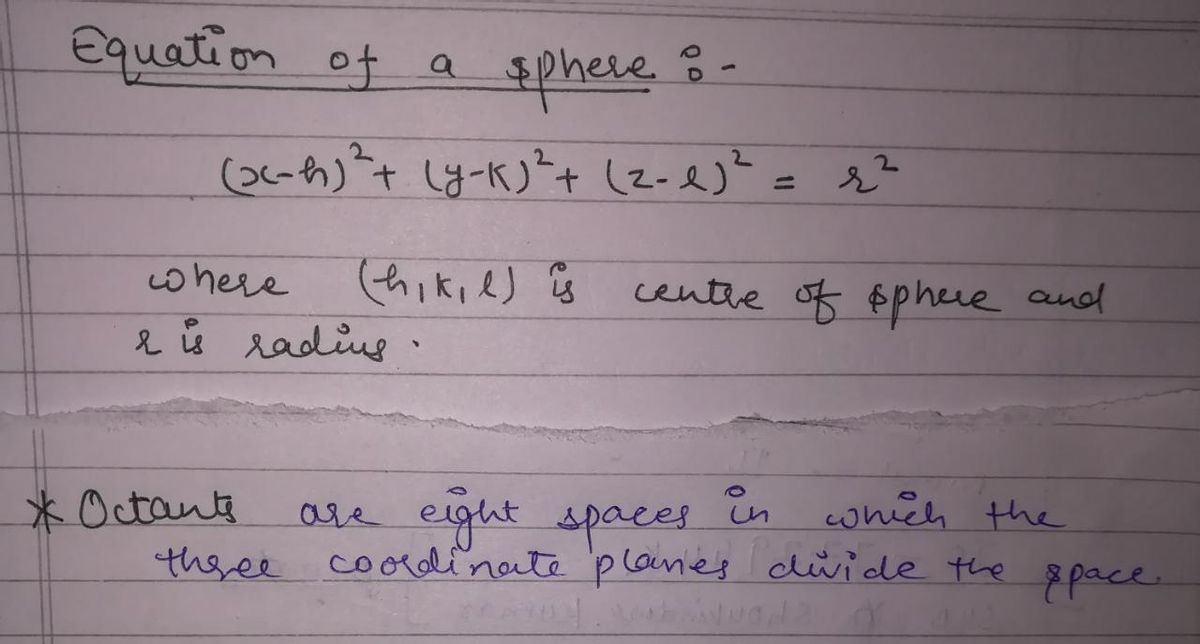 Equation of a sphere :-
(x-h)² + (y-k)² + (z-l)² = r²
where (h, k, l) is centre of sphere and
r is radius.
* Octants are eight spaces in which the
three coordinate planes divide the space.